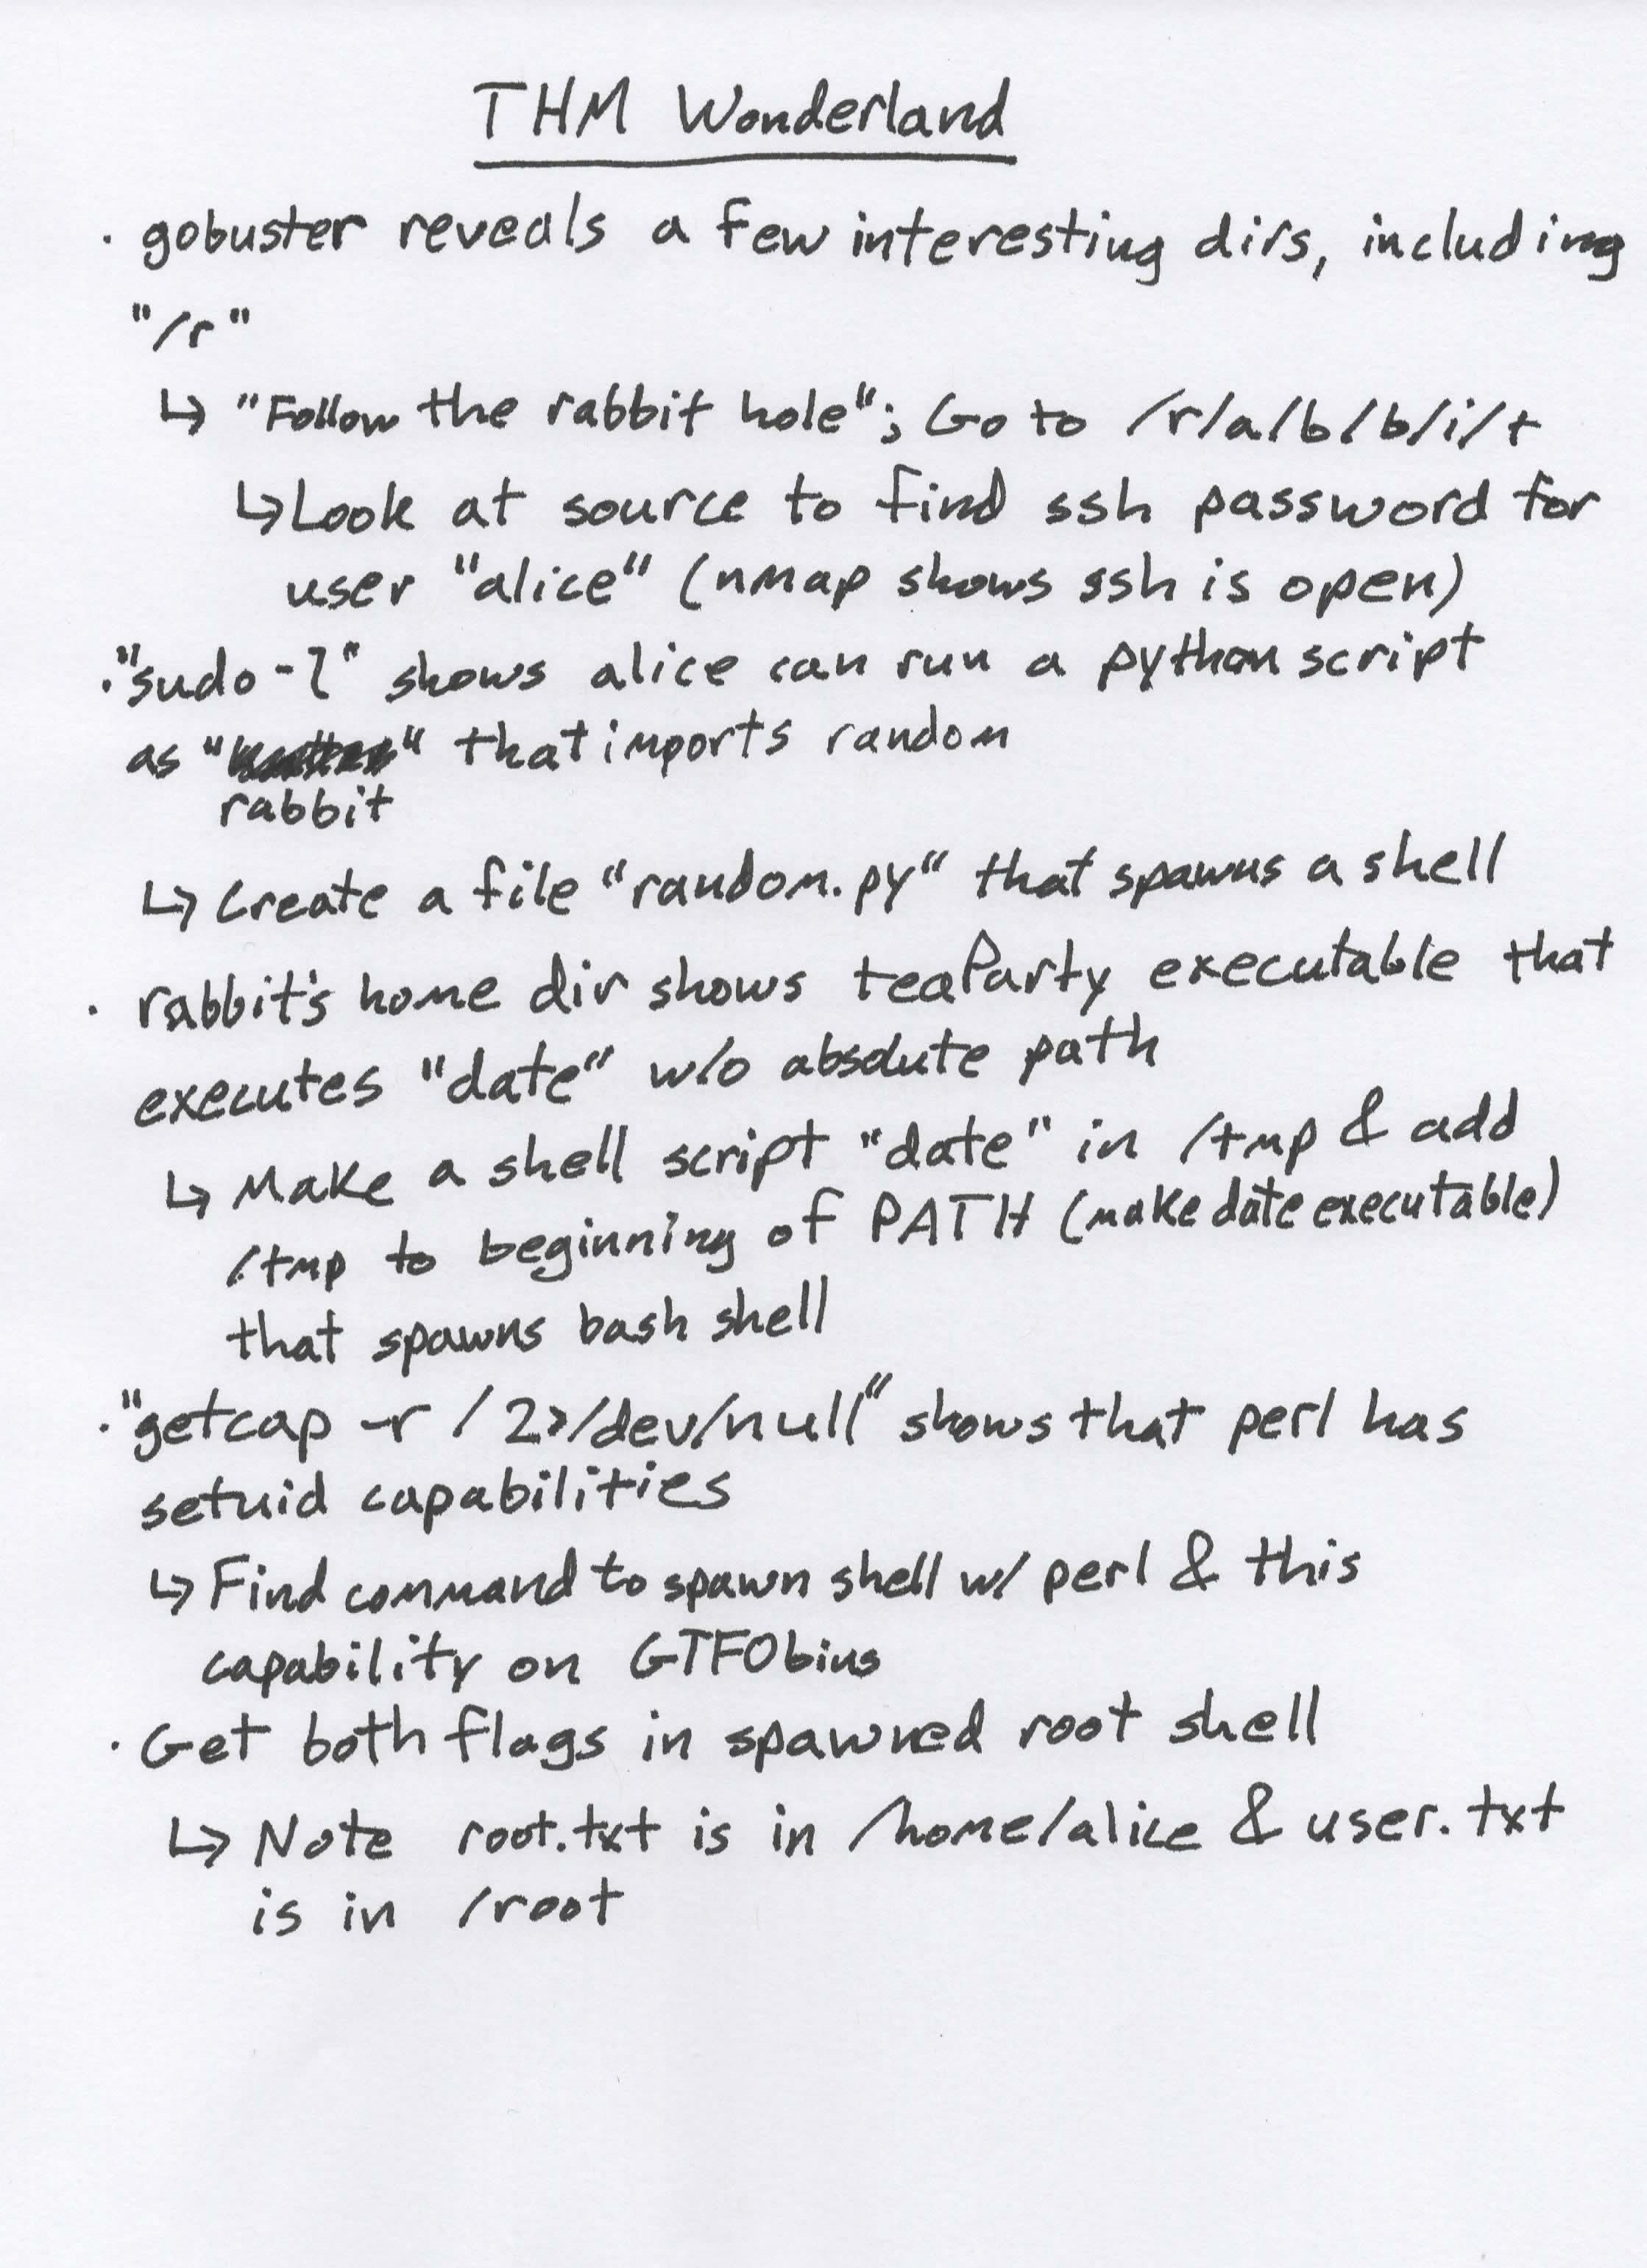 THM Wonderland
· gobuster reveals a few interesting dirs, including
"/r"
↳ "Follow the rabbit hole"; Go to /r/a/b/b/i/t
↳ Look at source to find ssh password for
user "alice" (nmap shows ssh is open)
· "sudo -l" shows alice can run a python script
as "" that imports random
rabbit
↳ Create a file "random.py" that spawns a shell
· rabbit's home dir shows teaParty executable that
executes "date" w/o absolute path
↳ Make a shell script "date" in /tmp & add
/tmp to beginning of PATH (make date executable)
that spawns bash shell
· "getcap -r / 2>/dev/null" shows that perl has
setuid capabilities
↳ Find command to spawn shell w/ perl & this
capability on GTFObins
· Get both flags in spawned root shell
↳ Note root.txt is in /home/alice & user.txt
is in /root